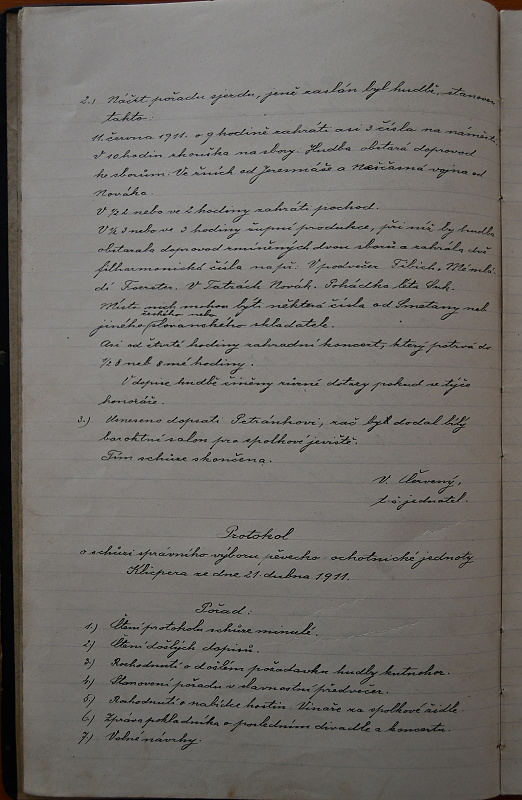 2.) Náčrt pořadu sjezdu, jenž zaslán byl hudbě, stanoven
takto:
11. června 1911. o 9 hodině zahráti asi 3 čísla na náměstí.
V 10 hodin zkouška na sbory. Hudba obstará doprovod
ke sborům: Ve žních od Jeremiáše a Nešťasná vojna od
Nováka.
V ½ 2 nebo ve 2 hodiny zahráti pochod.
V ½ 3 nebo ve 3 hodiny župní produkce, při níž by hudba
obstarala doprovod zmíněných dvou sborů a zahrála dvě
filharmonická čísla na př.: V podvečer Fibich, Mému
di Foerster. V Tatrách Novák. Pohádka léta Suk.
Místo nich mohou býti některá čísla od Smetany neb
českého nebo
jiného slovanského skladatele.
Asi od čtvrté hodiny zahradní koncert, který potrvá do
½ 8 neb 8 mé hodiny.
V dopise hudbě činěny různé dotazy pokud se týče
honoráře.
3.) Usneseno dopsati Petránkovi, rač byl dodal bílý
barokní salon pro spolkové jeviště.
Tím schůze skončena.
V. Červený,
t. č. jednatel.
Protokol
o schůzi správního výboru pěvecko-ochotnické jednoty
Klicpera ze dne 21. dubna 1911.
Pořad:
1.) Čtení protokolu schůze minulé.
2.) Čtení došlých dopisů.
3.) Rozhodnutí o došlém požadavku hudby kutnohor.
4.) Stanovení pořadu v slavnostní předvečer.
5.) Rozhodnutí o nabídce hostin. Vináře za spolkové židle.
6.) Zpráva pokladníka o posledním divadle a koncertu.
7.) Volné návrhy.